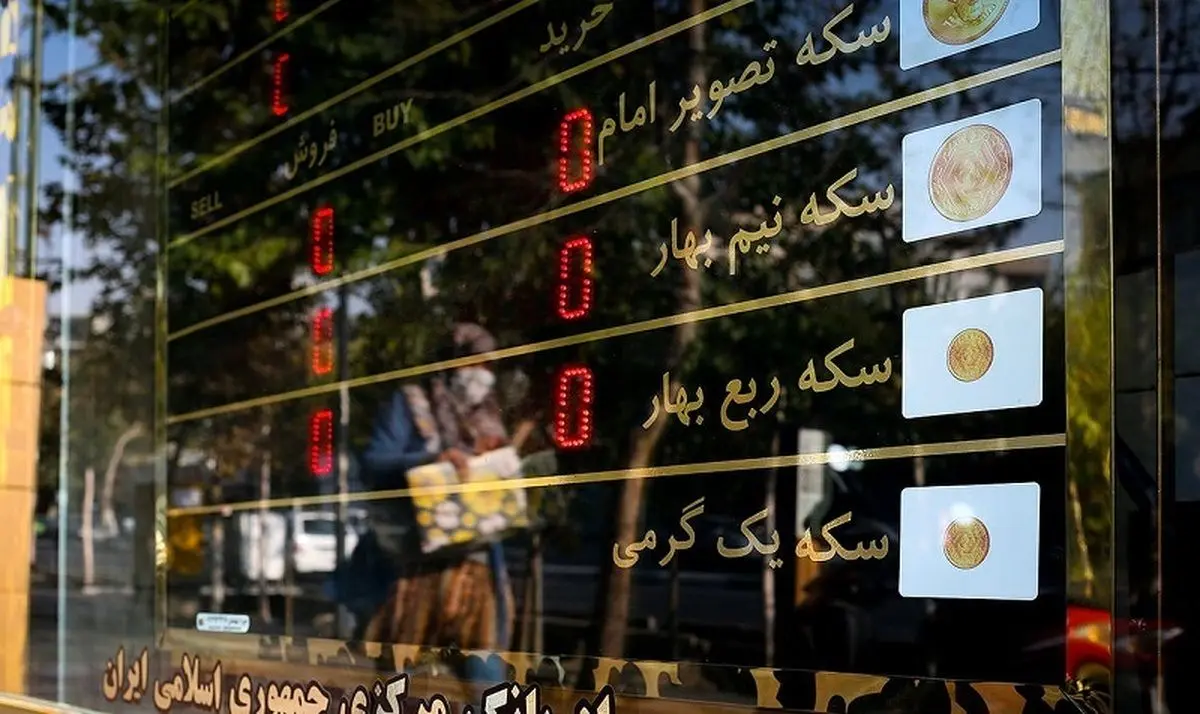 خرید
فروش BUY
SELL
سکه تصویر امام 0 0
سکه نیم بهار 0 0
سکه ربع بهار 0 0
سکه یک گرمی
بانک مرکزی جمهوری اسلامی ایران